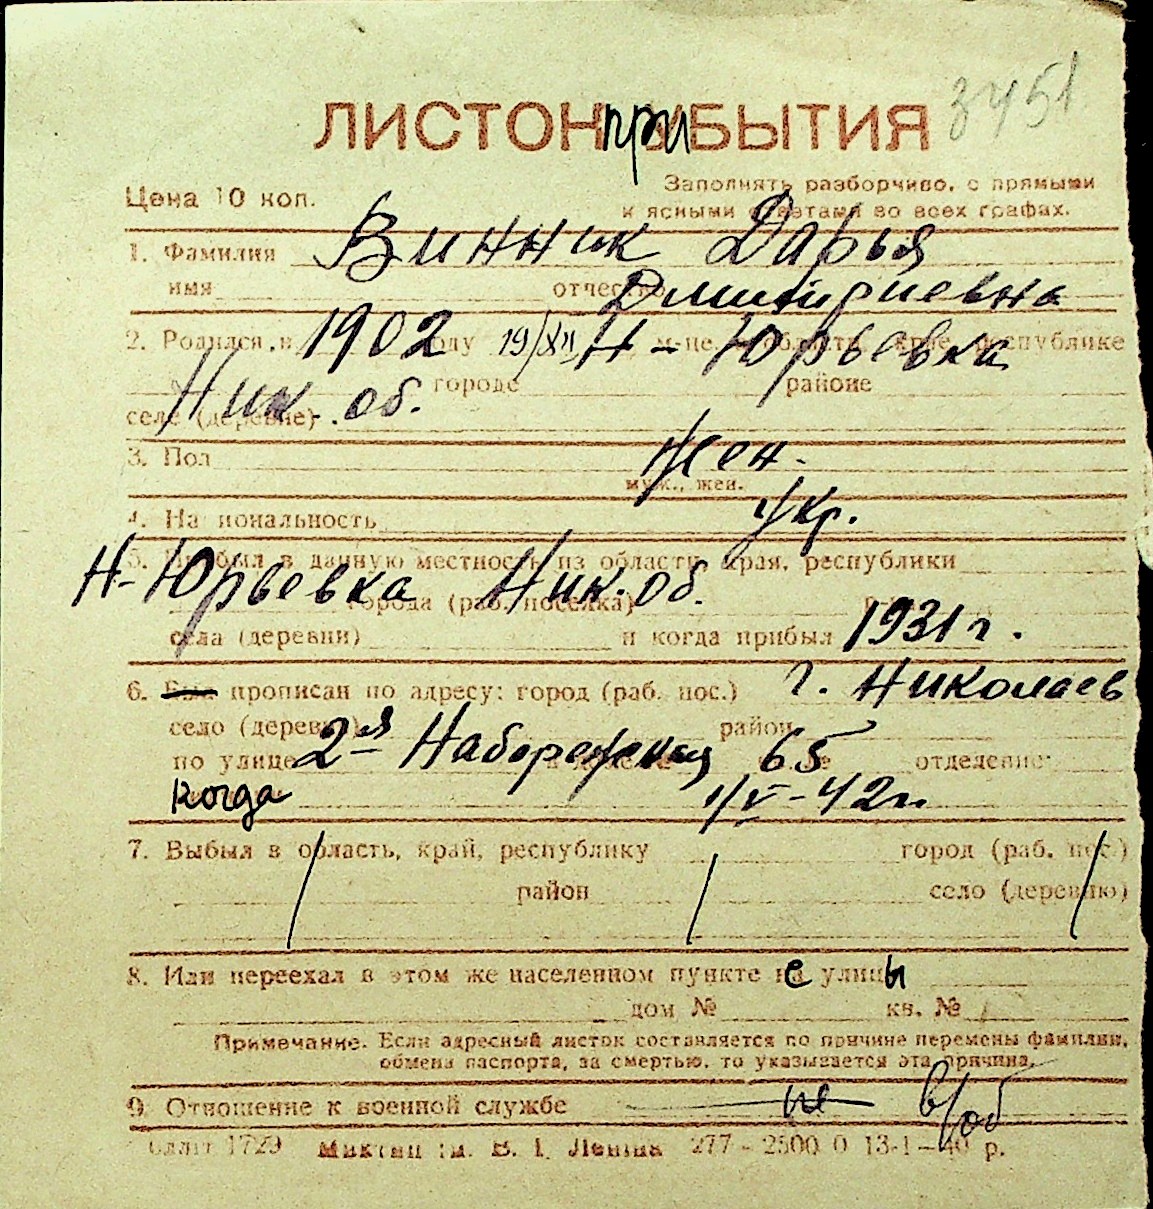 3451
ЛИСТОК при БЫТИЯ
Цена 10 коп.
Заполнять разборчиво, с прямыми
и ясными ответами во всех графах.
1. Фамилия Винник Дарья
имя отчество Дмитриевна
2. Родился в 1902 году 19/XII м-це, области, крае, республике Н-Юрьевка
городе районе
селе (деревне) Ник. об.
3. Пол жен.
муж., жен.
4. Национальность укр.
5. Прибыл в данную местность из области, края, республики
Н-Юрьевка Ник. об.
города (раб. поселка)
села (деревни) и когда прибыл 1931 г.
6. Был прописан по адресу: город (раб. пос.) г. Николаев
село (деревня) район
по улице 2-я Набережная 65 отделение
когда 1/V-42 г.
7. Выбыл в область, край, республику город (раб. пос.)
район село (деревню)
8. Или переехал в этом же населенном пункте не улицы
дом № кв. №
Примечание. Если адресный листок составляется по причине перемены фамилии,
обмена паспорта, за смертью, то указывается эта причина.
9. Отношение к военной службе не в/об
1729 им. В. І. Леніна 277 - 2500.0 13-1-40 р.